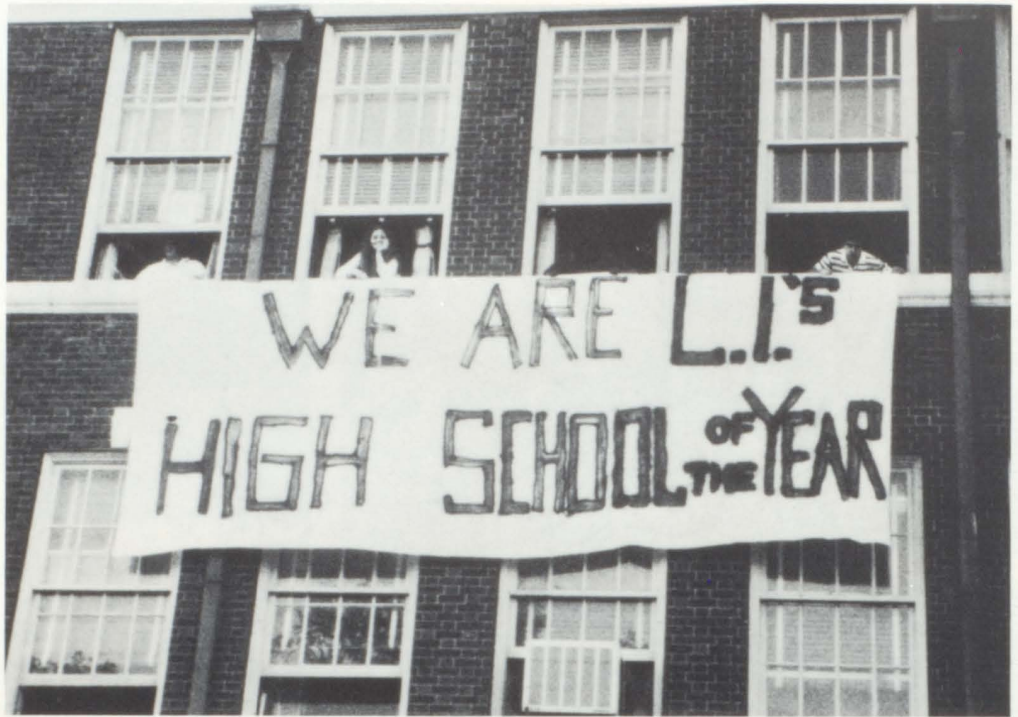 WE ARE L.I.'S
HIGH SCHOOL OF THE YEAR